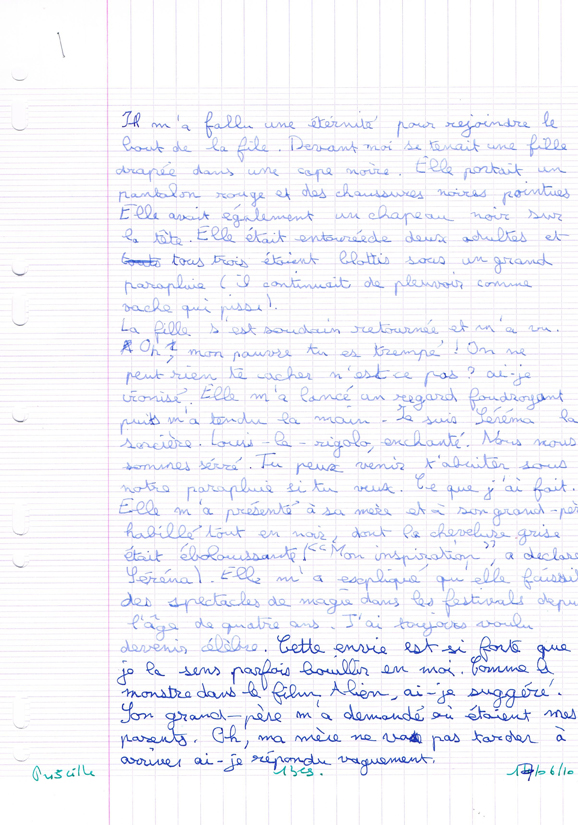 Il m'a fallu une éternité pour rejoindre le
bout de la file. Devant moi se tenait une fille
drapée dans une cape noire. Elle portait un
pantalon rouge et des chaussures noires pointues
Elle avait également un chapeau noir sur
la tête. Elle était entouréede deux adultes et
tous trois étaient blottis sous un grand
parapluie (il continuait de pleuvoir comme
vache qui pisse).
La fille s'est soudain retournée et m'a vu.
Oh, mon pauvre tu es trempé ! On ne
peut rien te cacher n'est ce pas ? ai-je
ironisé. Elle m'a lancé un regard foudroyant
puis m'a tendu la main. Je suis Séréna la
sorcière. Louis-le-rigolo, enchanté. Nous nous
sommes sérré. Tu peux venir t'abriter sous
notre parapluie si tu veux. Ce que j'ai fait.
Elle m'a présenté à sa mère et à son grand-pèr
habillé tout en noir, dont la chevelure grise
était éblouissante (<<Mon inspiration", a déclaré
Séréna). Elle m'a expliqué qu'elle faissit
des spectacles de magie dans les festivals depu
l'âge de quatre ans. J'ai toujours voulu
devenir célèbre. Cette envie est si forte que
je la sens parfois bouillir en moi. Comme le
monstre dans le film Alien, ai-je suggéré.
Son grand-père m'a demandé où étaient mes
parents. Oh, ma mère ne va pas tarder à
arriver ai-je répondu vaguement.
/06/10